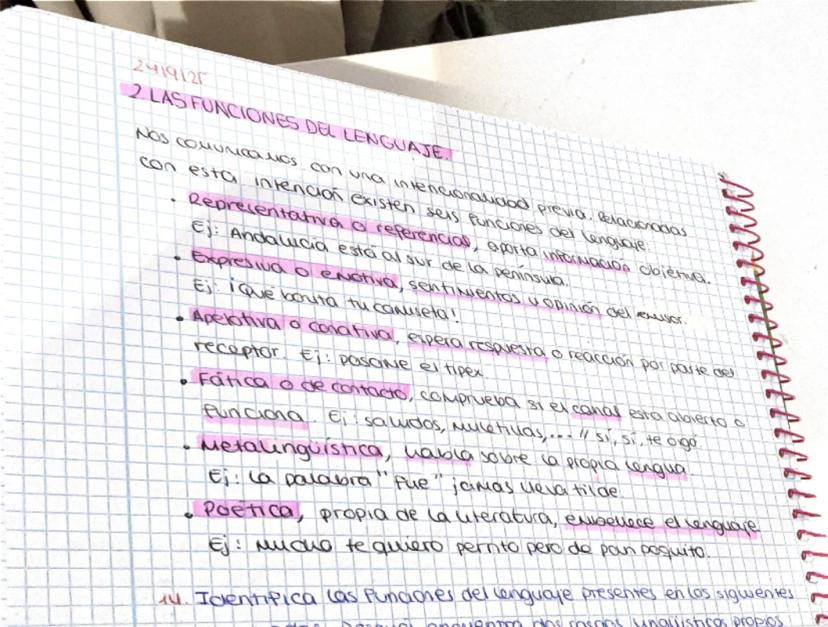 24/9/25
2. LAS FUNCIONES DEL LENGUAJE.
Nos comunicamos con una intencionalidad previa. Relacionadas
con esta intención existen seis funciones del lenguaje:
· Representativa o referencial, aporta información objetiva.
Ej: Andalucía está al sur de la península.
· Expresiva o emotiva, sentimientos u opinión del emisor.
Ej: ¡Qué bonita tu camiseta!
· Apelativa o conativa, espera respuesta o reacción por parte del
receptor. Ej: pásame el tipex.
· Fática o de contacto, comprueba si el canal está abierto o
funciona. Ej: saludos, muletillas,... // sí, sí, te oigo.
· Metalingüística, habla sobre la propia lengua.
Ej: La palabra "fue" jamás lleva tilde.
· Poética, propia de la literatura, embellece el lenguaje
Ej: Mucho te quiero perrito pero de pan poquito.
14. Identifica las funciones del lenguaje presentes en los siguientes
encuentra dos rasgos lingüísticos propios